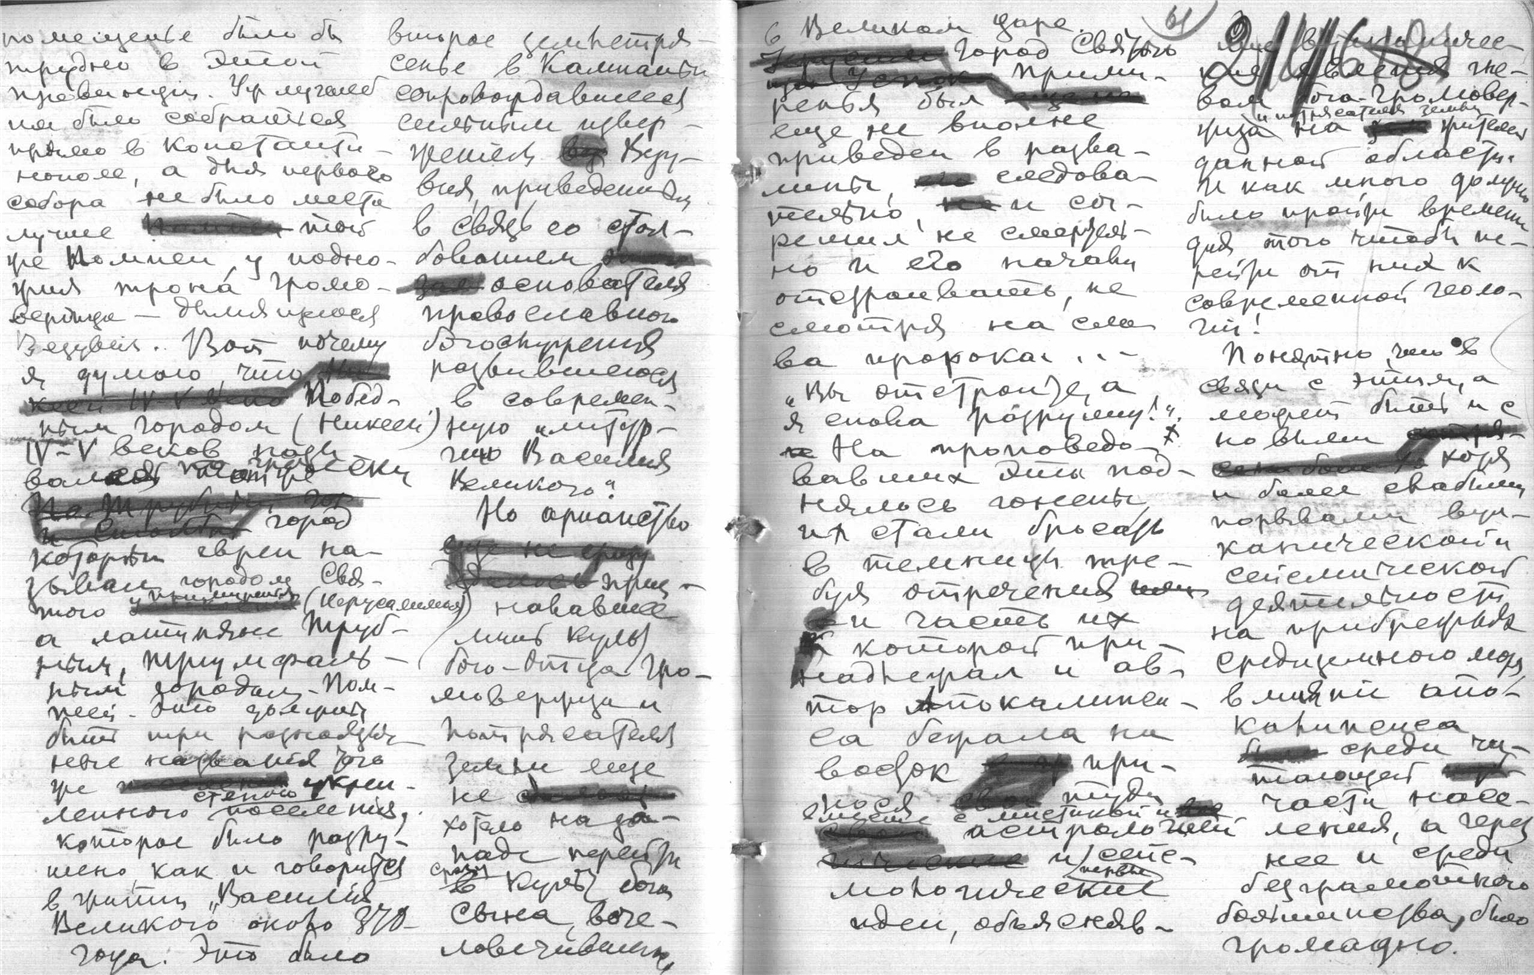 помещенье было бы
трудно в этой
провинции. Ему лучше б
было собраться
прямо в Константи-
нополе, а для первого
собора не было места
лучше той
же Помпеи у подно-
жия трона Громо-
вержца — дымящегося
Везувия. Вот почему
я думаю что
Побед-
ным городом (Никеей)
IV-V веков
город
который евреи на-
зывали городом Свя-
того примирения (Иерусалимом)
а латиняне Труб-
ным, Триумфаль-
ным городом - Пом-
пеей. Это
быть три разноязыч-
ные названия того
же укреп-
ленного стеною поселения,
которое было разру-
шено, как и говорится
в житии "Василия
Великого около 370-
года. Это было
второе землетря-
сенье в Кампании
сопровождавшееся
сильным извер-
жением Везу-
вия, приведенным
в связь со стол-
бованием
основателя
православного
богослужения
развившегося
в современ-
ную "литур-
гию Василия
Великого."
Но арианство
приз-
нававшее
лишь культ
бога-отца Гро-
мовержца и
потрясателя
земли еще
не
хотело на за-
паде перейти
сразу в культ бога
сына, воче-
ловечившись
61
6 Великом царе.
Город Святого
Прими-
ренья был
еще не вполне
приведен в разва-
лины, следова-
тельно, и сот-
рясши не смертель-
но и его начали
отстраивать, не
смотря на сло-
ва пророка: ..-
"Вы отстроите, а
я снова разрушу!".
На проповедо-
вавших это под-
нялось гоненье
их стали бросать
в темницы тре-
буя отречения
и часть их
к которой при-
надлежал и ав-
тор Апокалипси-
са бежала на
восток при-
нося туда
вместе с мистикой и
астрологией
и первые сейс-
мологические
идеи, объясняв-
шие вулканичес-
кие явления гне-
вом бога-громовер-
жца и потрясателя земли
на жителей
данной области.
И как много должно
было пройти времени
для того чтобы пе-
рейти от них к
современной геоло-
гии!
Понятно, что в
связи с этим, а
может быть и с
новыми
хотя
и более слабыми
порывами вул-
канической и
сейсмической
деятельности
на прибрежьях
Средиземного моря,
влияние апо-
калипсиса
среди чи-
тающей
части насе-
ления, а через
нее и среди
безграмотного
большинства, было
громадно.